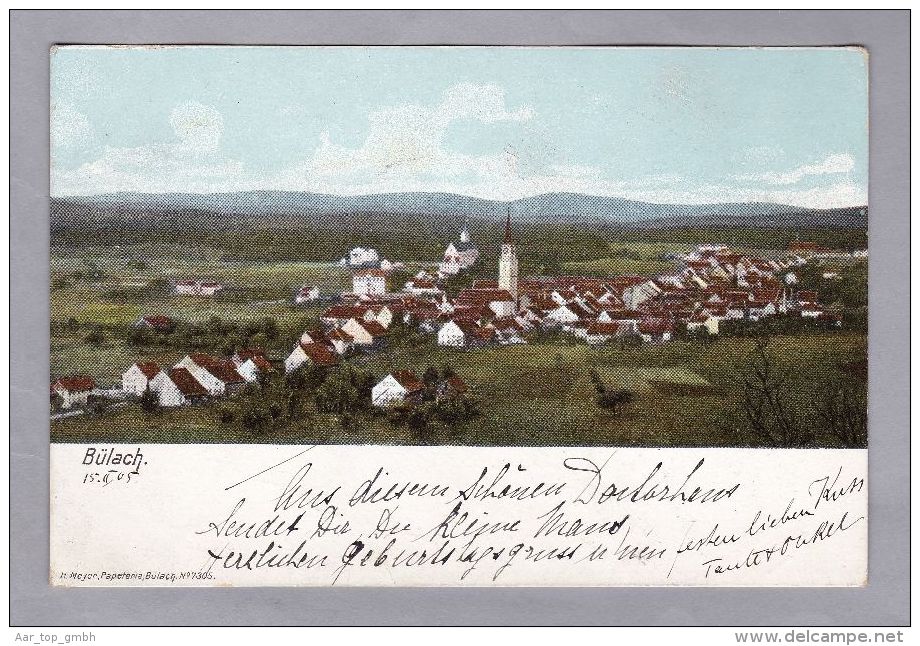 Bülach.
15. II 05
Aus diesem schönen Dorforhans
Sendet Dir, Du kleine Maus
Herzlichen Geburtstagsgruss u. einen festen lieben Kuss
Tante + Onkel
H. Meyer, Papeterie, Bülach. Nº 7305.
Aar_top_gmbh
www.delcampe.net